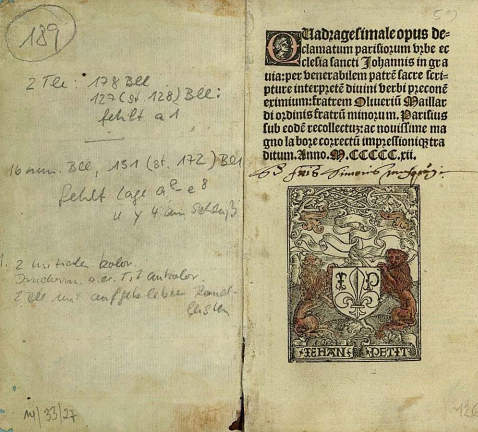 189
2 Tle: 178 Bll
127 (st. 128) Bll:
fehlt a 1
16 num. Bll, 151 (st. 172) Bll
fehlt Lage
4 am Schluß
2 Initialen kolor.
2 Tle mit aufgeklebten Rand-
leisten
14/33/27
59
QUadragesimale opus de-
clamatum parisiorum vrbe ec
clesia sancti Johannis in gra
uia: per venerabilem patrē sacre scri-
pture interpretē diuini verbi preconē
eximium: fratrem Oliueriū Maillar
di ordinis fratrū minorum. Parisius
sub eodē recollectuz: ac nouissime ma
gno labore correctū impressioniq; tra
ditum. Anno. M.CCCCC.xii.
IEHAN PETIT